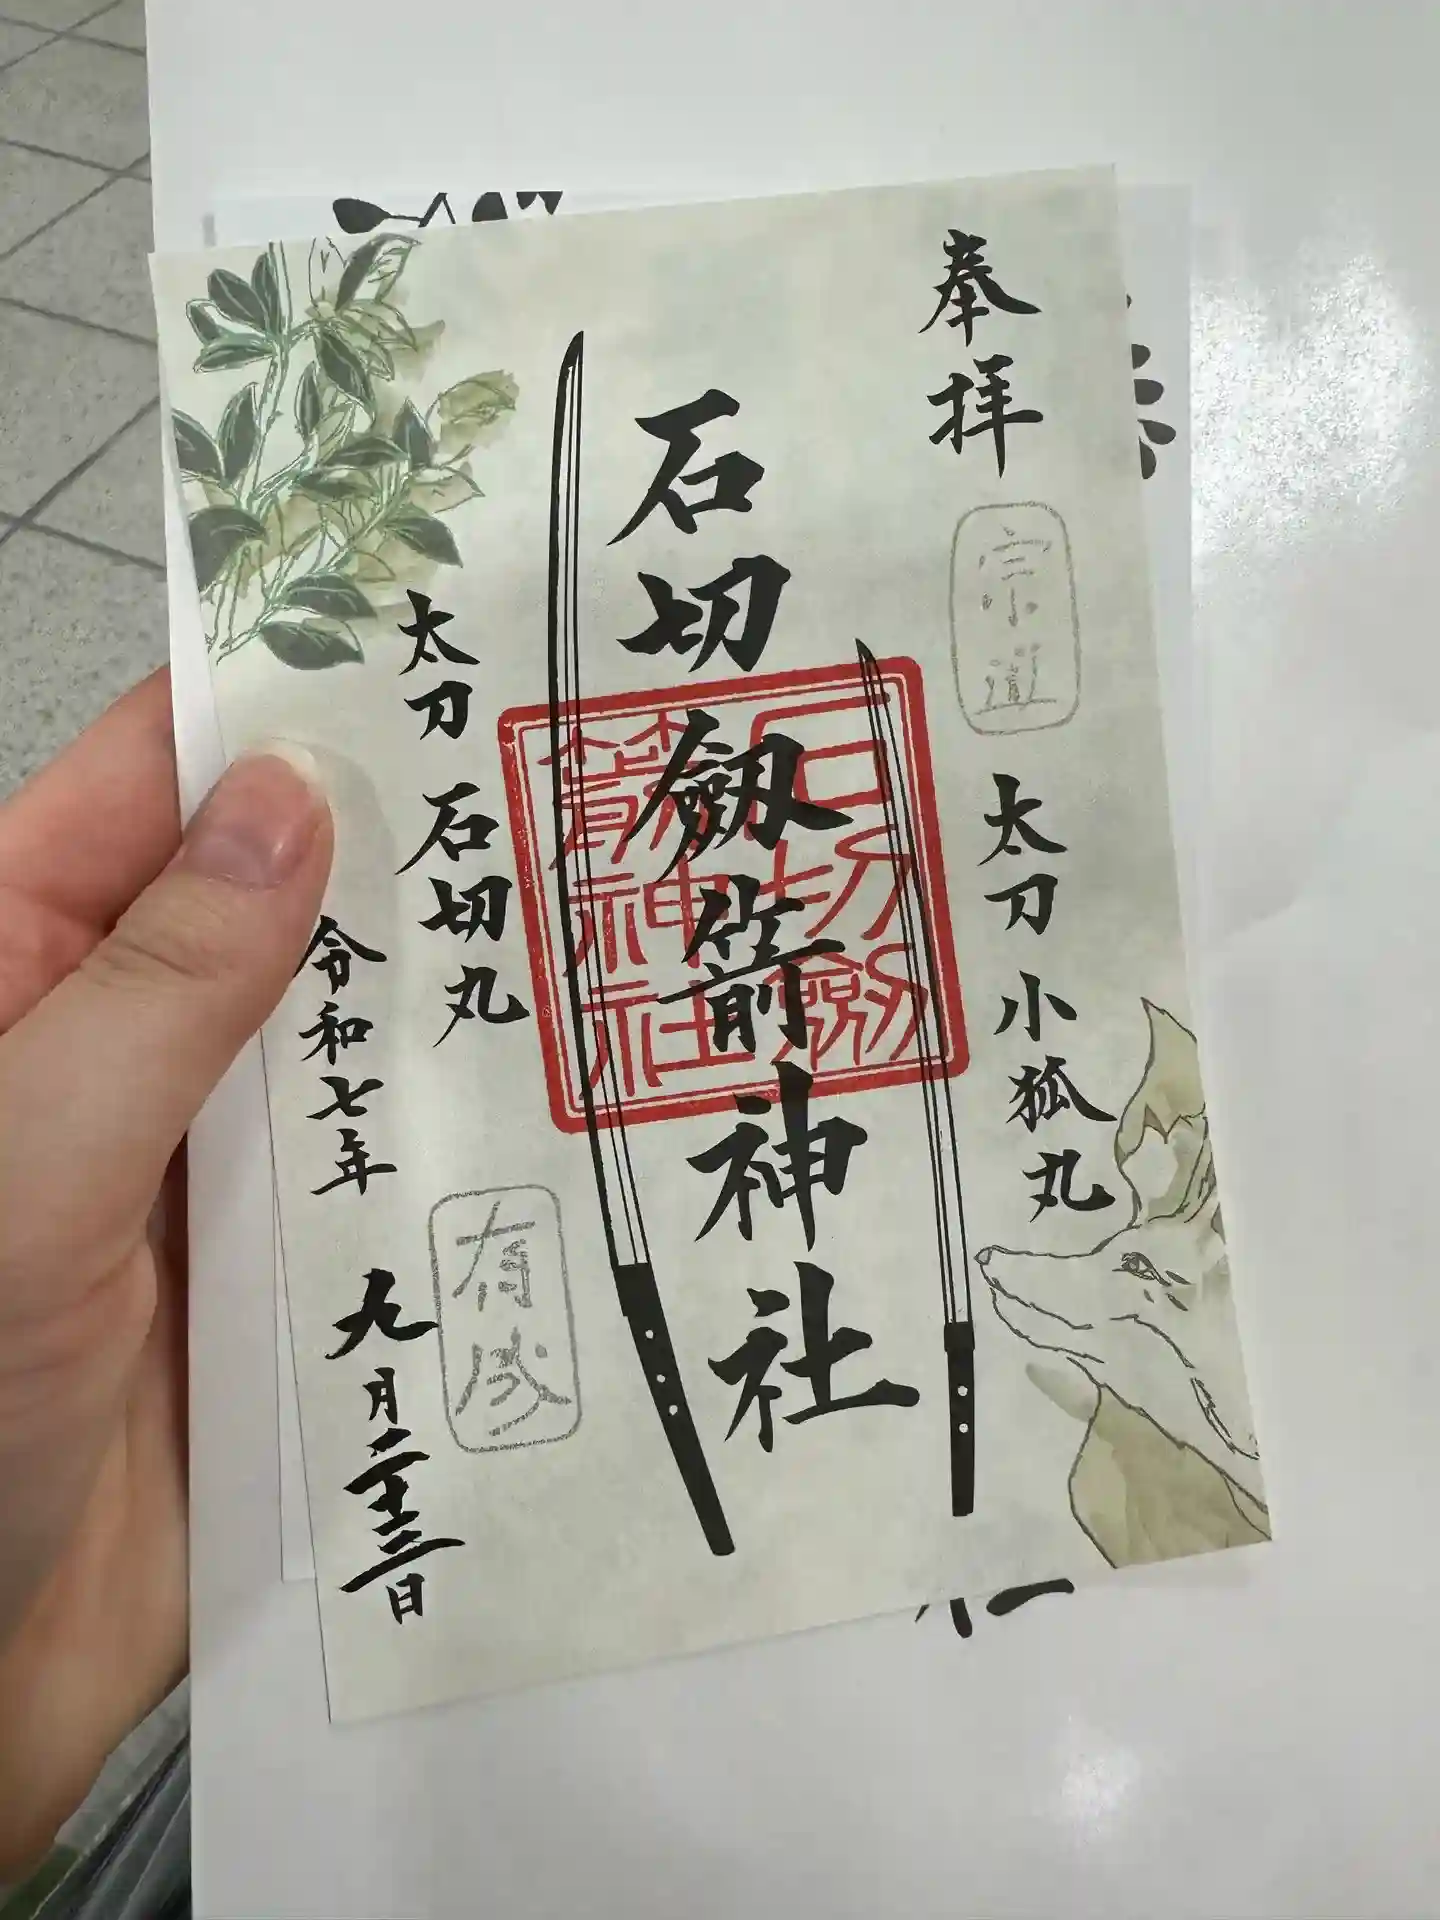 奉拝
宗近
太刀 小狐丸
石切劔箭神社
石切劔
箭神社
太刀 石切丸
有成
令和七年 九月二十三日